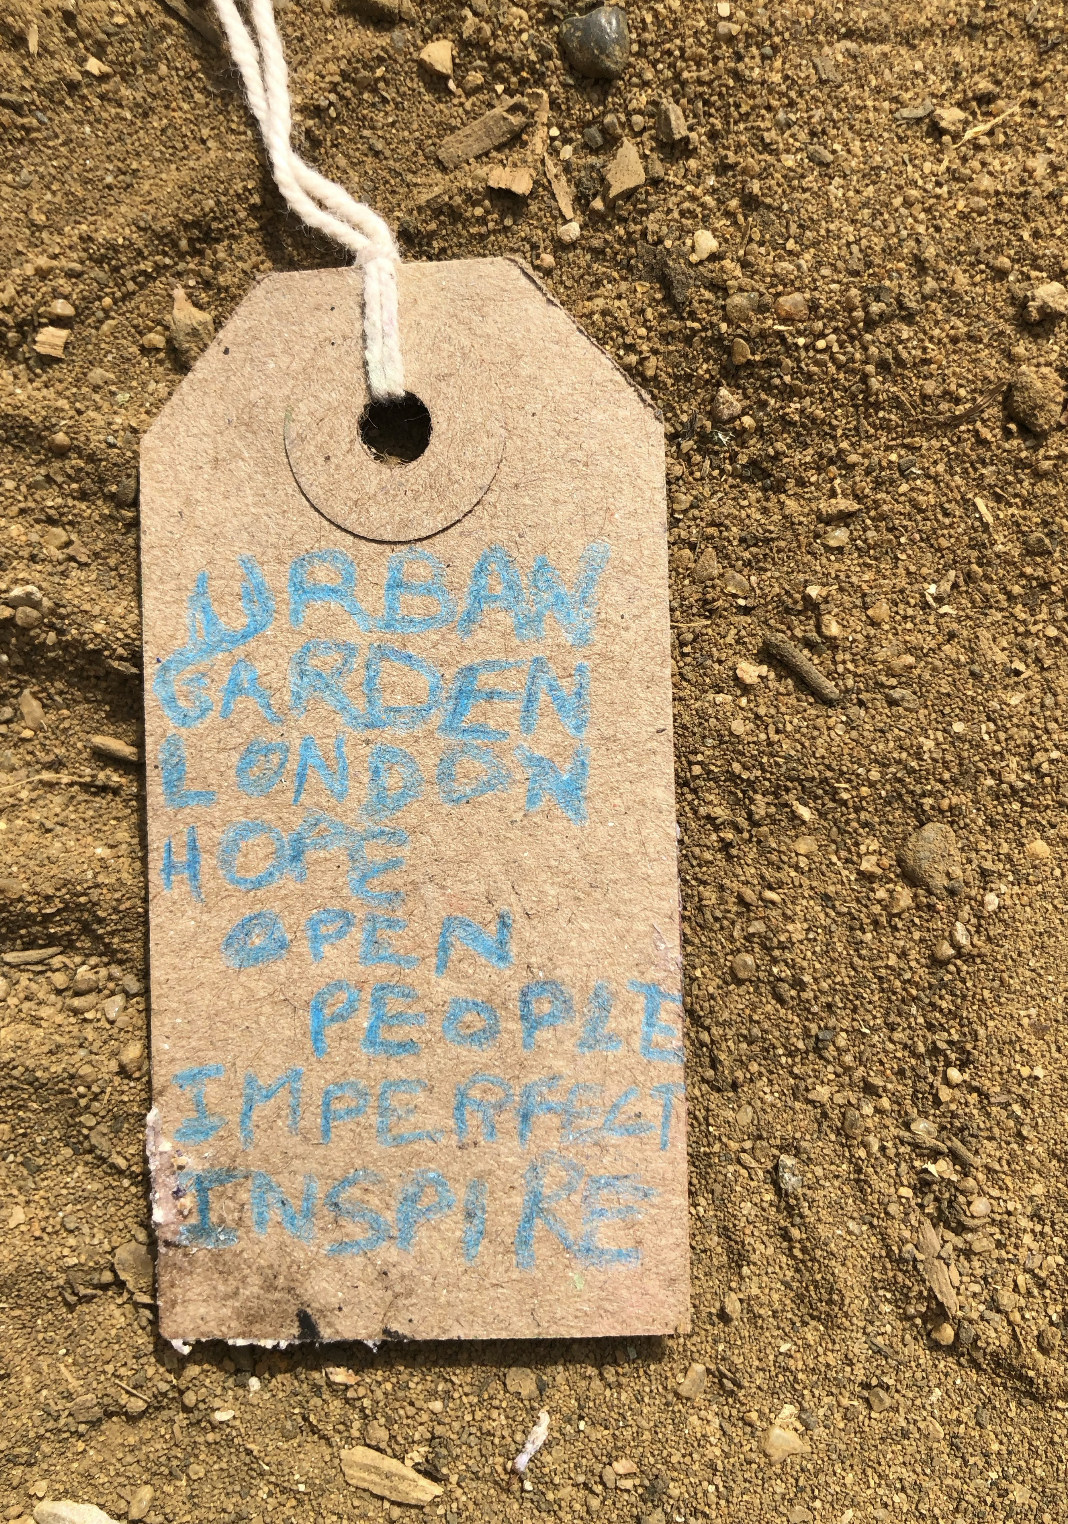 URBAN
GARDEN
LONDON
HOPE
OPEN
PEOPLE
IMPERFECT
INSPIRE